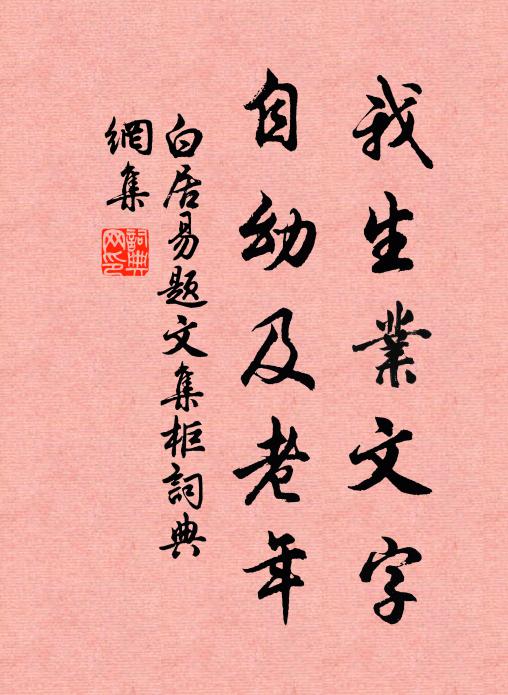 我生業文字
自幼及老年
白居易題文集柜詞典
網集
詞典
网印